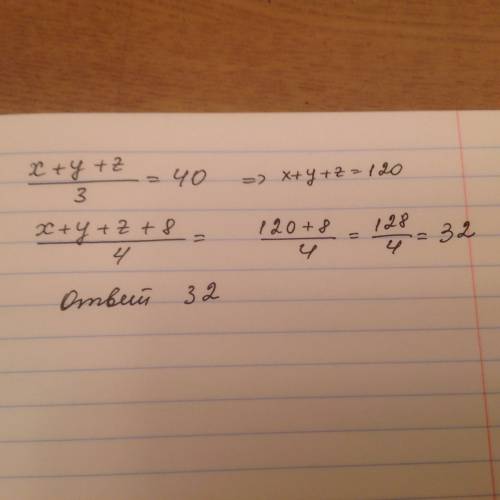 (x+y+z)/3 = 40 => x+y+z=120
(x+y+z+8)/4 = (120+8)/4 = 128/4 = 32
Ответ 32